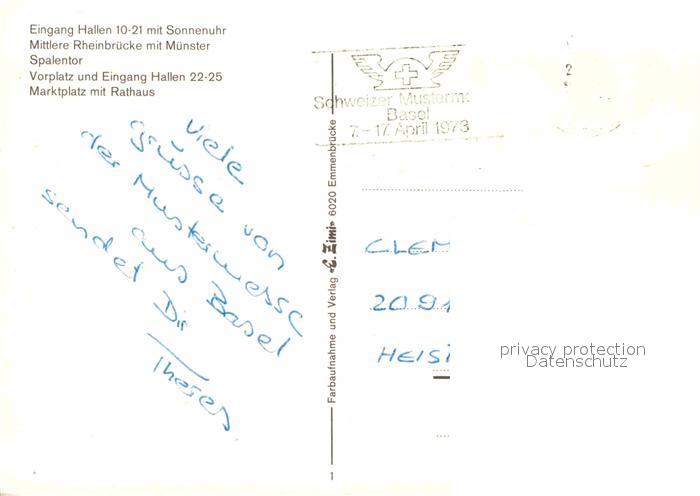 Eingang Hallen 10-21 mit Sonnenuhr
Mittlere Rheinbrücke mit Münster
Spalentor
Vorplatz und Eingang Hallen 22-25
Marktplatz mit Rathaus
Viele
Grüsse von
der Mustermesse
aus Basel
sendet Dir
Farbaufnahme und Verlag «E. Zimi» 6020 Emmenbrücke
1
Schweizer Musterm
Basel
7.-17. April 1973
2
CLEM
20.91
HEISI
privacy protection
Datenschutz